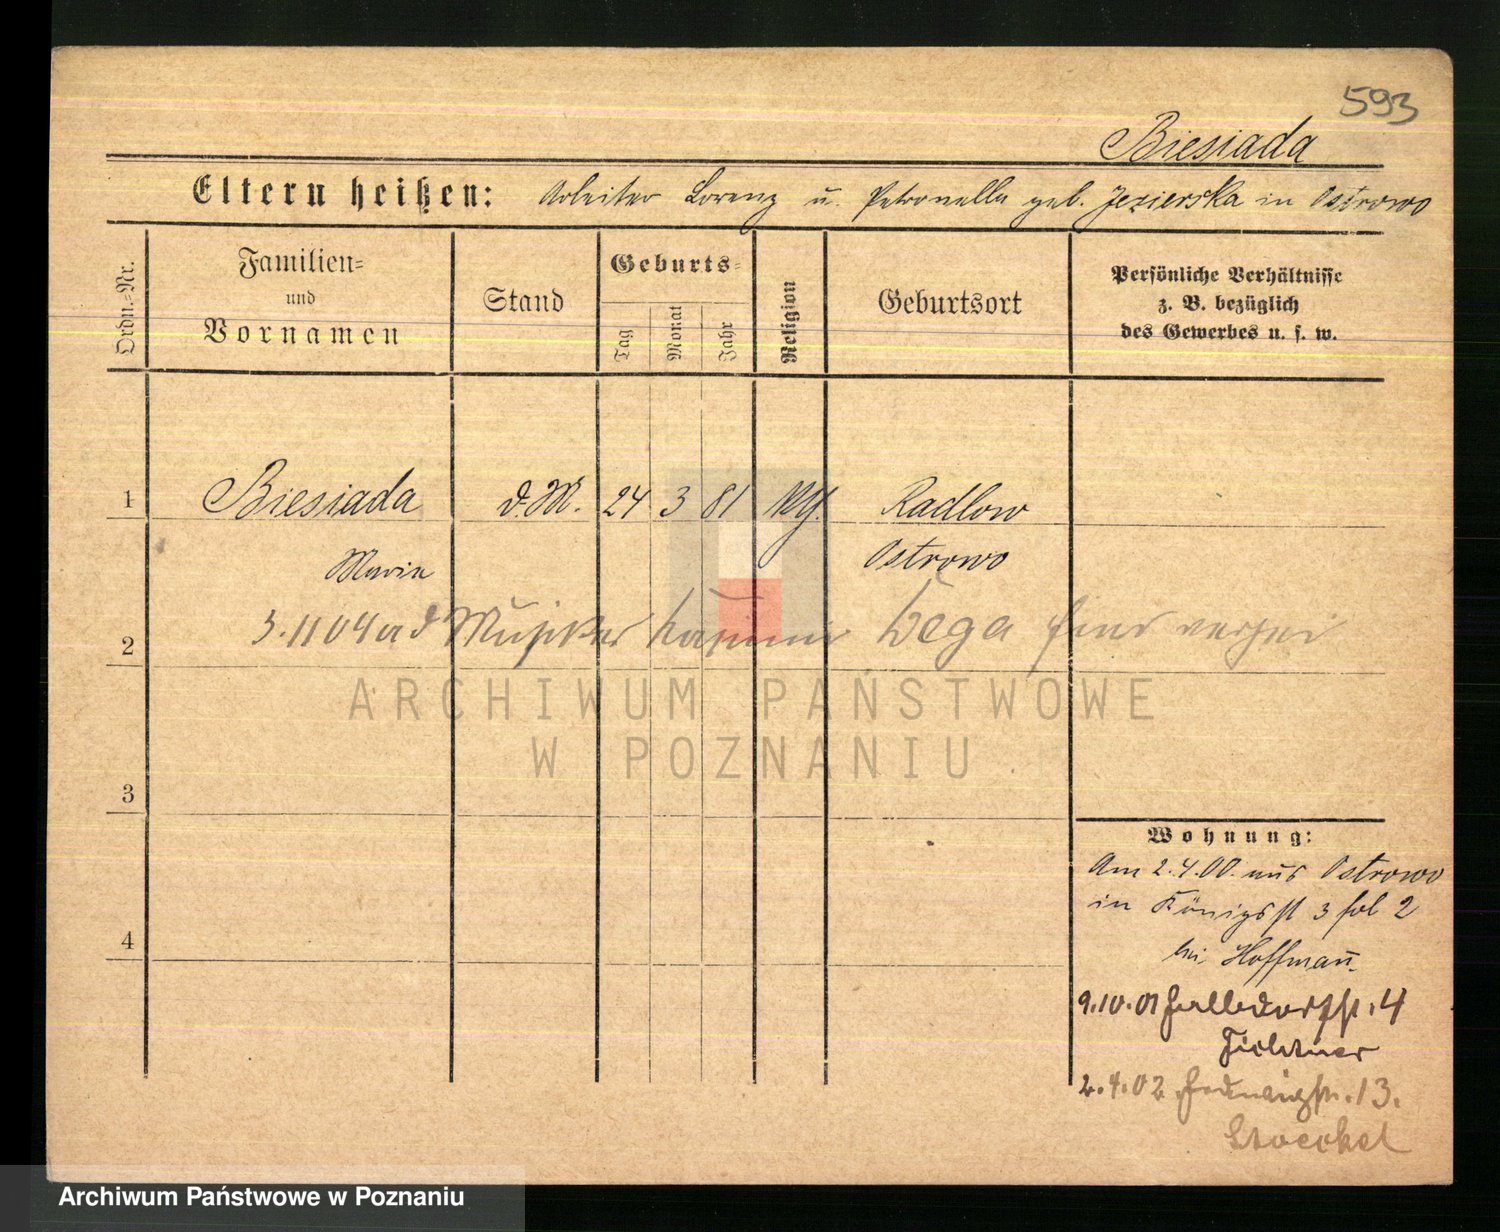 593
Biesiada
Eltern heißen: Arbeiter Lorenz u. Petronella geb. Jezierska in Ostrowo
Ordn.=Nr.
Familien=
und
Vornamen
Stand
Geburts=
Tag
Monat
Jahr
Religion
Geburtsort
Persönliche Verhältnisse
z. B. bezüglich
des Gewerbes u. s. w.
1 Biesiada d.M. 24 3 81 Radlow
Maria Ostrowo
2 3.11 04
3
ARCHIWUM PAŃSTWOWE
W POZNANIU
4
Wohnung:
Am 2.4.00. aus Ostrowo
in Königsst 3 hol 2
bei Hoffmañ.
9.10.01 4
Fichtner
2.4.02 13.
Stoeckel
Archiwum Państwowe w Poznaniu